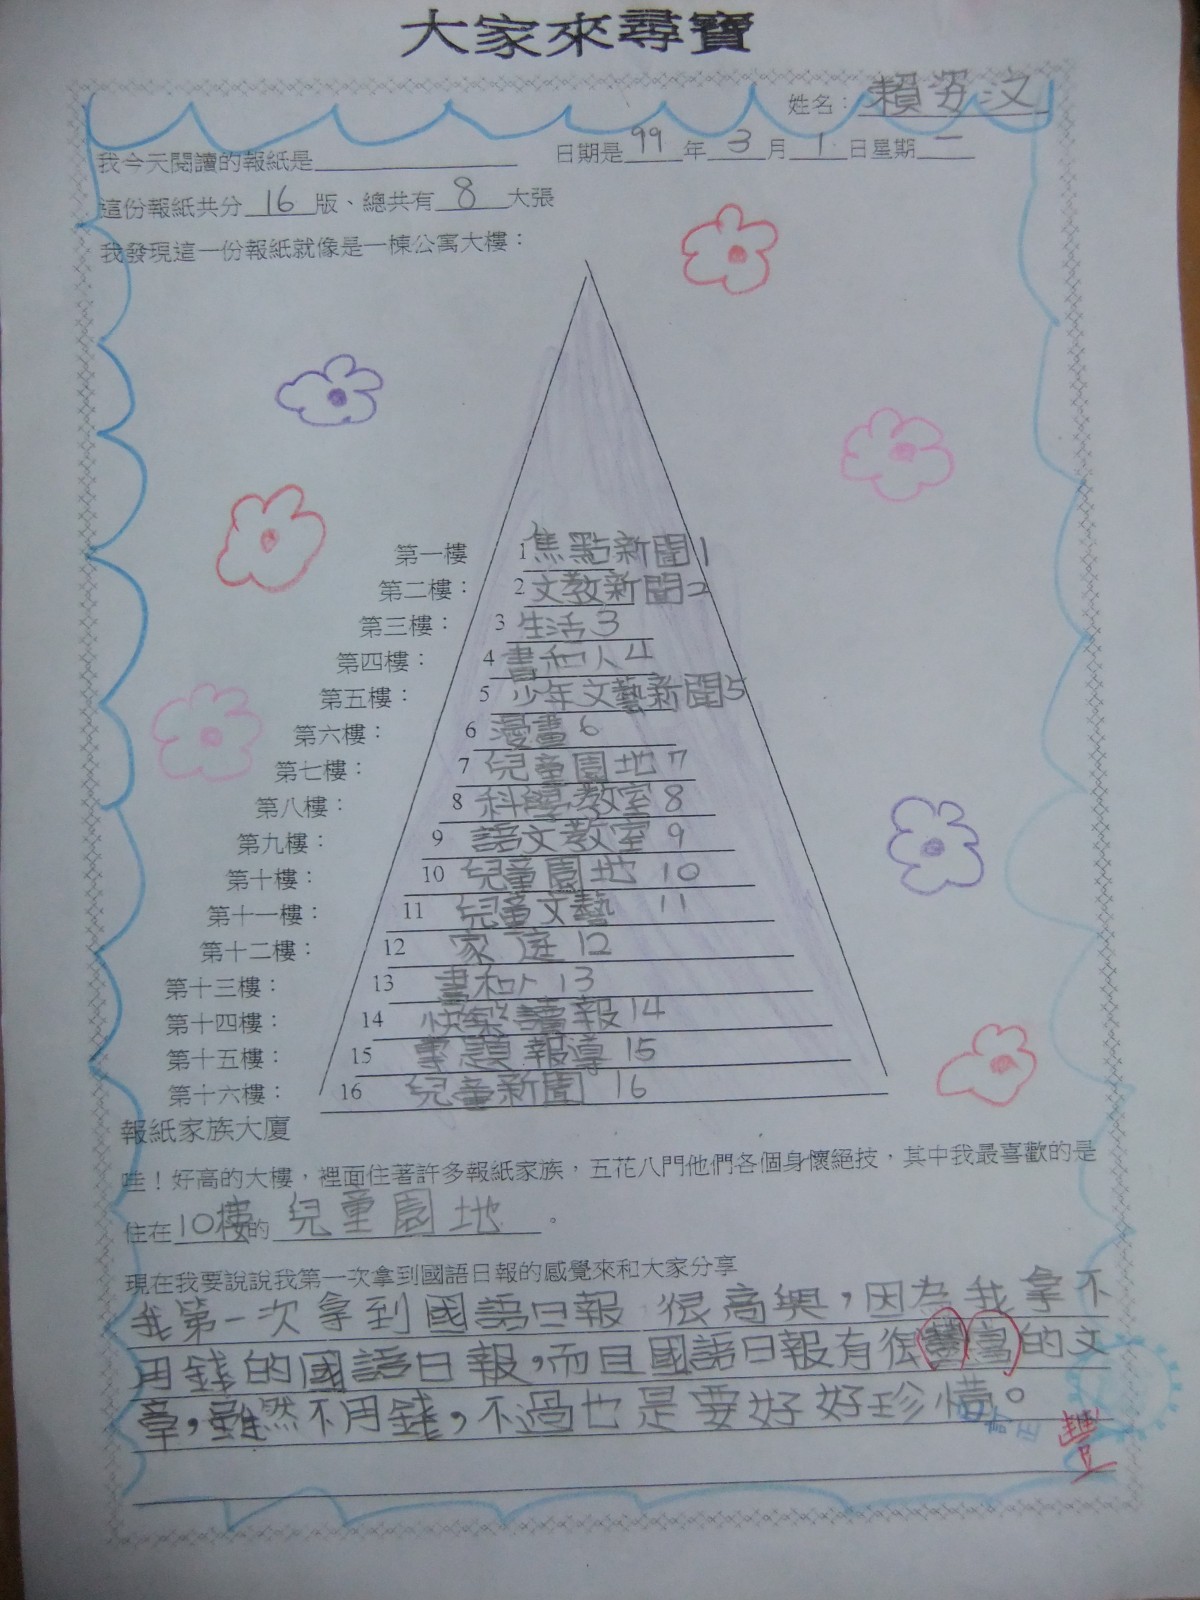 大家來尋寶
姓名：賴姿汶
我今天閱讀的報紙是 日期是99年3月1日星期一
這份報紙共分16版、總共有8大張
我發現這一份報紙就像是一棟公寓大樓：
第一樓 1焦點新聞1
第二樓： 2文教新聞2
第三樓： 3生活3
第四樓： 4書和人4
第五樓： 5少年文藝新聞5
第六樓： 6漫畫6
第七樓： 7兒童園地7
第八樓： 8科學教室8
第九樓： 9語文教室9
第十樓： 10兒童園地10
第十一樓： 11兒童文藝11
第十二樓： 12家庭12
第十三樓： 13書和人13
第十四樓： 14快樂讀報14
第十五樓： 15專題報導15
第十六樓： 16兒童新聞16
報紙家族大廈
哇！好高的大樓，裡面住著許多報紙家族，五花八門他們各個身懷絕技，其中我最喜歡的是
住在10樓的兒童園地。
現在我要說說我第一次拿到國語日報的感覺來和大家分享
我第一次拿到國語日報很高興，因為我拿不
用錢的國語日報，而且國語日報有很豐富的文
章，雖然不用錢，不過也是要好好珍惜。
訂正
豐